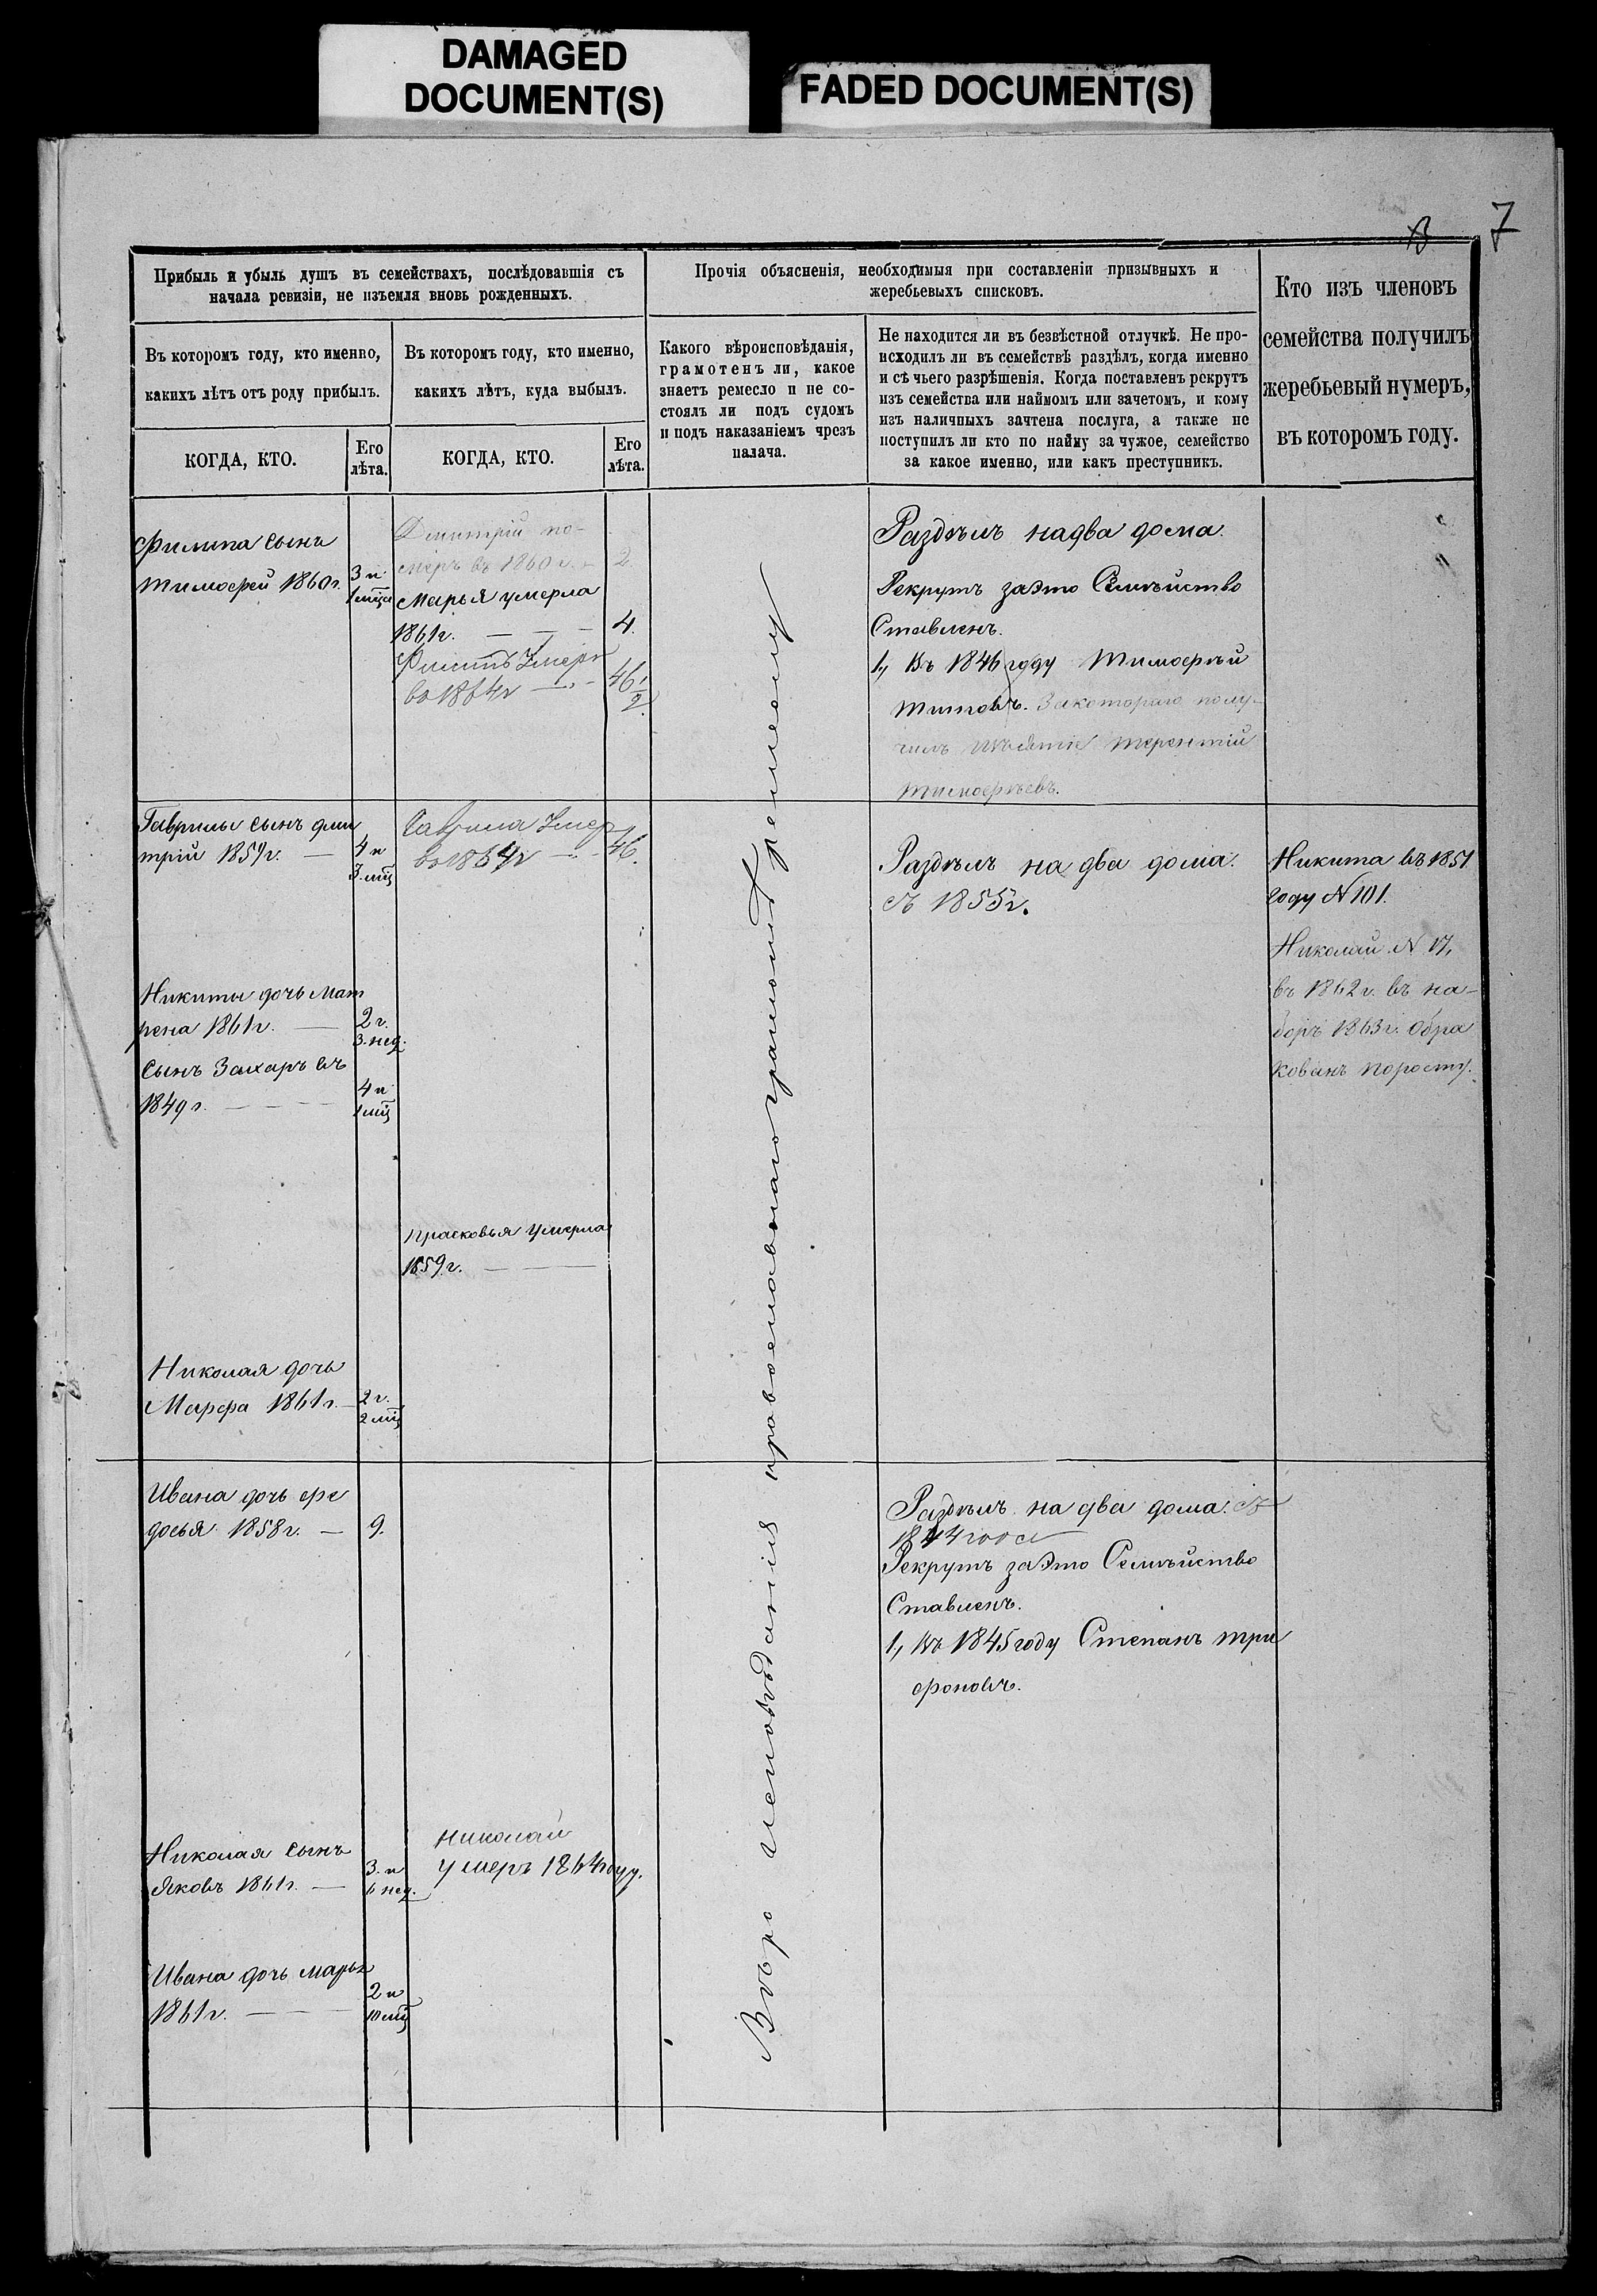 DAMAGED
DOCUMENT(S)
FADED DOCUMENT(S)
7
Прибыль и убыль душъ въ семействахъ, послѣдовавшія съ
начала ревизіи, не изъемля вновь рожденныхъ.
Въ которомъ году, кто именно,
какихъ лѣтъ отъ роду прибылъ.
КОГДА, КТО.
Его
лѣта.
Въ которомъ году, кто именно,
какихъ лѣтъ, куда выбылъ.
КОГДА, КТО.
Его
лѣта.
Прочія объясненія, необходимыя при составленіи призывныхъ и
жеребьевыхъ списковъ.
Какого вѣроисповѣданія,
грамотенъ ли, какое
знаетъ ремесло и не со-
стоялъ ли подъ судомъ
и подъ наказаніемъ чрезъ
палача.
Не находится ли въ безвѣстной отлучкѣ. Не про-
исходилъ ли въ семействѣ раздѣлъ, когда именно
и съ чьего разрѣшенія. Когда поставленъ рекрутъ
изъ семейства или наймомъ или зачетомъ, и кому
изъ наличныхъ зачтена послуга, а также не
поступилъ ли кто по найму за чужое, семейство
за какое именно, или какъ преступникъ.
Кто изъ членовъ
семейства получилъ
жеребьевый нумеръ,
въ которомъ году.
Филипа сынъ
Тимофей 1860г.
3 и
1 мца
Дмитрій по-
меръ въ 1860 г. 2.
Марья умерла
1861г. — — — 4.
Филипъ Умеръ
во 1864г — 46 1/2
Раздѣлъ на два дома.
Рекрутъ за это Семѣйство
Ставленъ.
1, Въ 1846 году Тимофѣй
Титовъ. За котораго полу-
чилъ Терентій
Тимофѣевъ.
Гаврилы сынъ Дми
трій 1859г. —
4 и
3. мц
Гаврила Умер
во 1864г — 46.
Раздѣлъ на два дома.
съ 1855г.
Никита въ 1851
году №101.
Николай № 17,
въ 1862 г. въ на-
боръ 1863 г. Обра
кованъ поросту.
Никиты дочь Мат
рена 1861г. —
2 г.
3. нед.
Сынъ Захаръ въ
1849 г. — — —
4 и
1 мц
Прасковья умерла
1859. г. — —
Николая дочь
Марфа 1861г. —
2 г.
2 мц
Вѣро исповѣданія православнаго грамотпъ ремеслу
Ивана дочь Фе
досья 1858г. — 9.
Раздѣлъ на два дома. съ
1844 года
Рекрутъ за это Семѣйство
Ставленъ.
1, Въ 1845 году Степанъ Три
фоновъ.
Николая сынъ
Яковъ 1861г. —
3. и
6 нед.
Николай
умеръ 1864 году.
Ивана дочь Марья
1861г. — —
2 и
10 мц